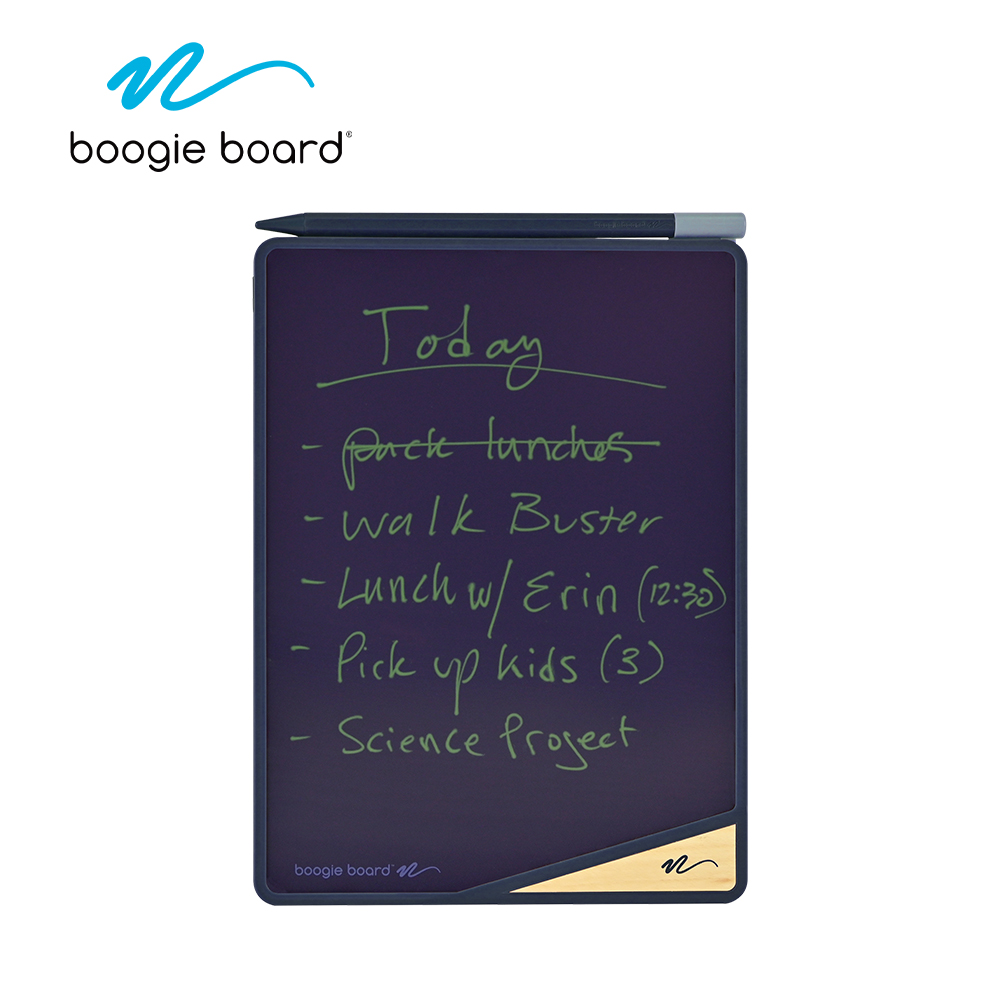 boogie board®
Today
- pack lunches
- walk Buster
- Lunch w/ Erin (12:30)
- Pick up kids (3)
- Science Project
boogie board™